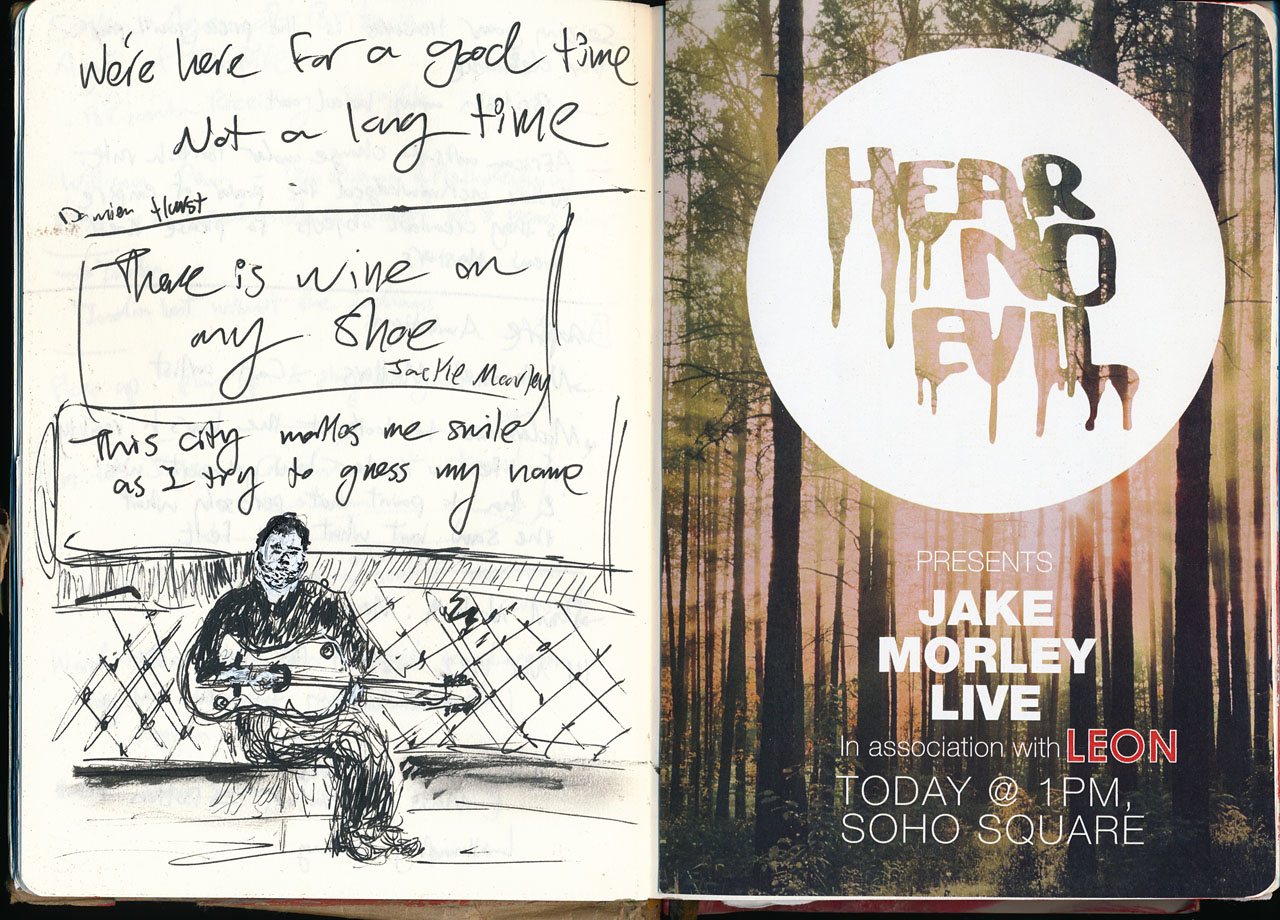 We're here for a good time
Not a long time
Damien Hurst
There is wine on
my shoe
Jackie Moorley
This city makes me smile
as I try to guess my name
HEAR
NO
EVIL
PRESENTS
JAKE
MORLEY
LIVE
In association with LEON
TODAY @ 1PM,
SOHO SQUARE